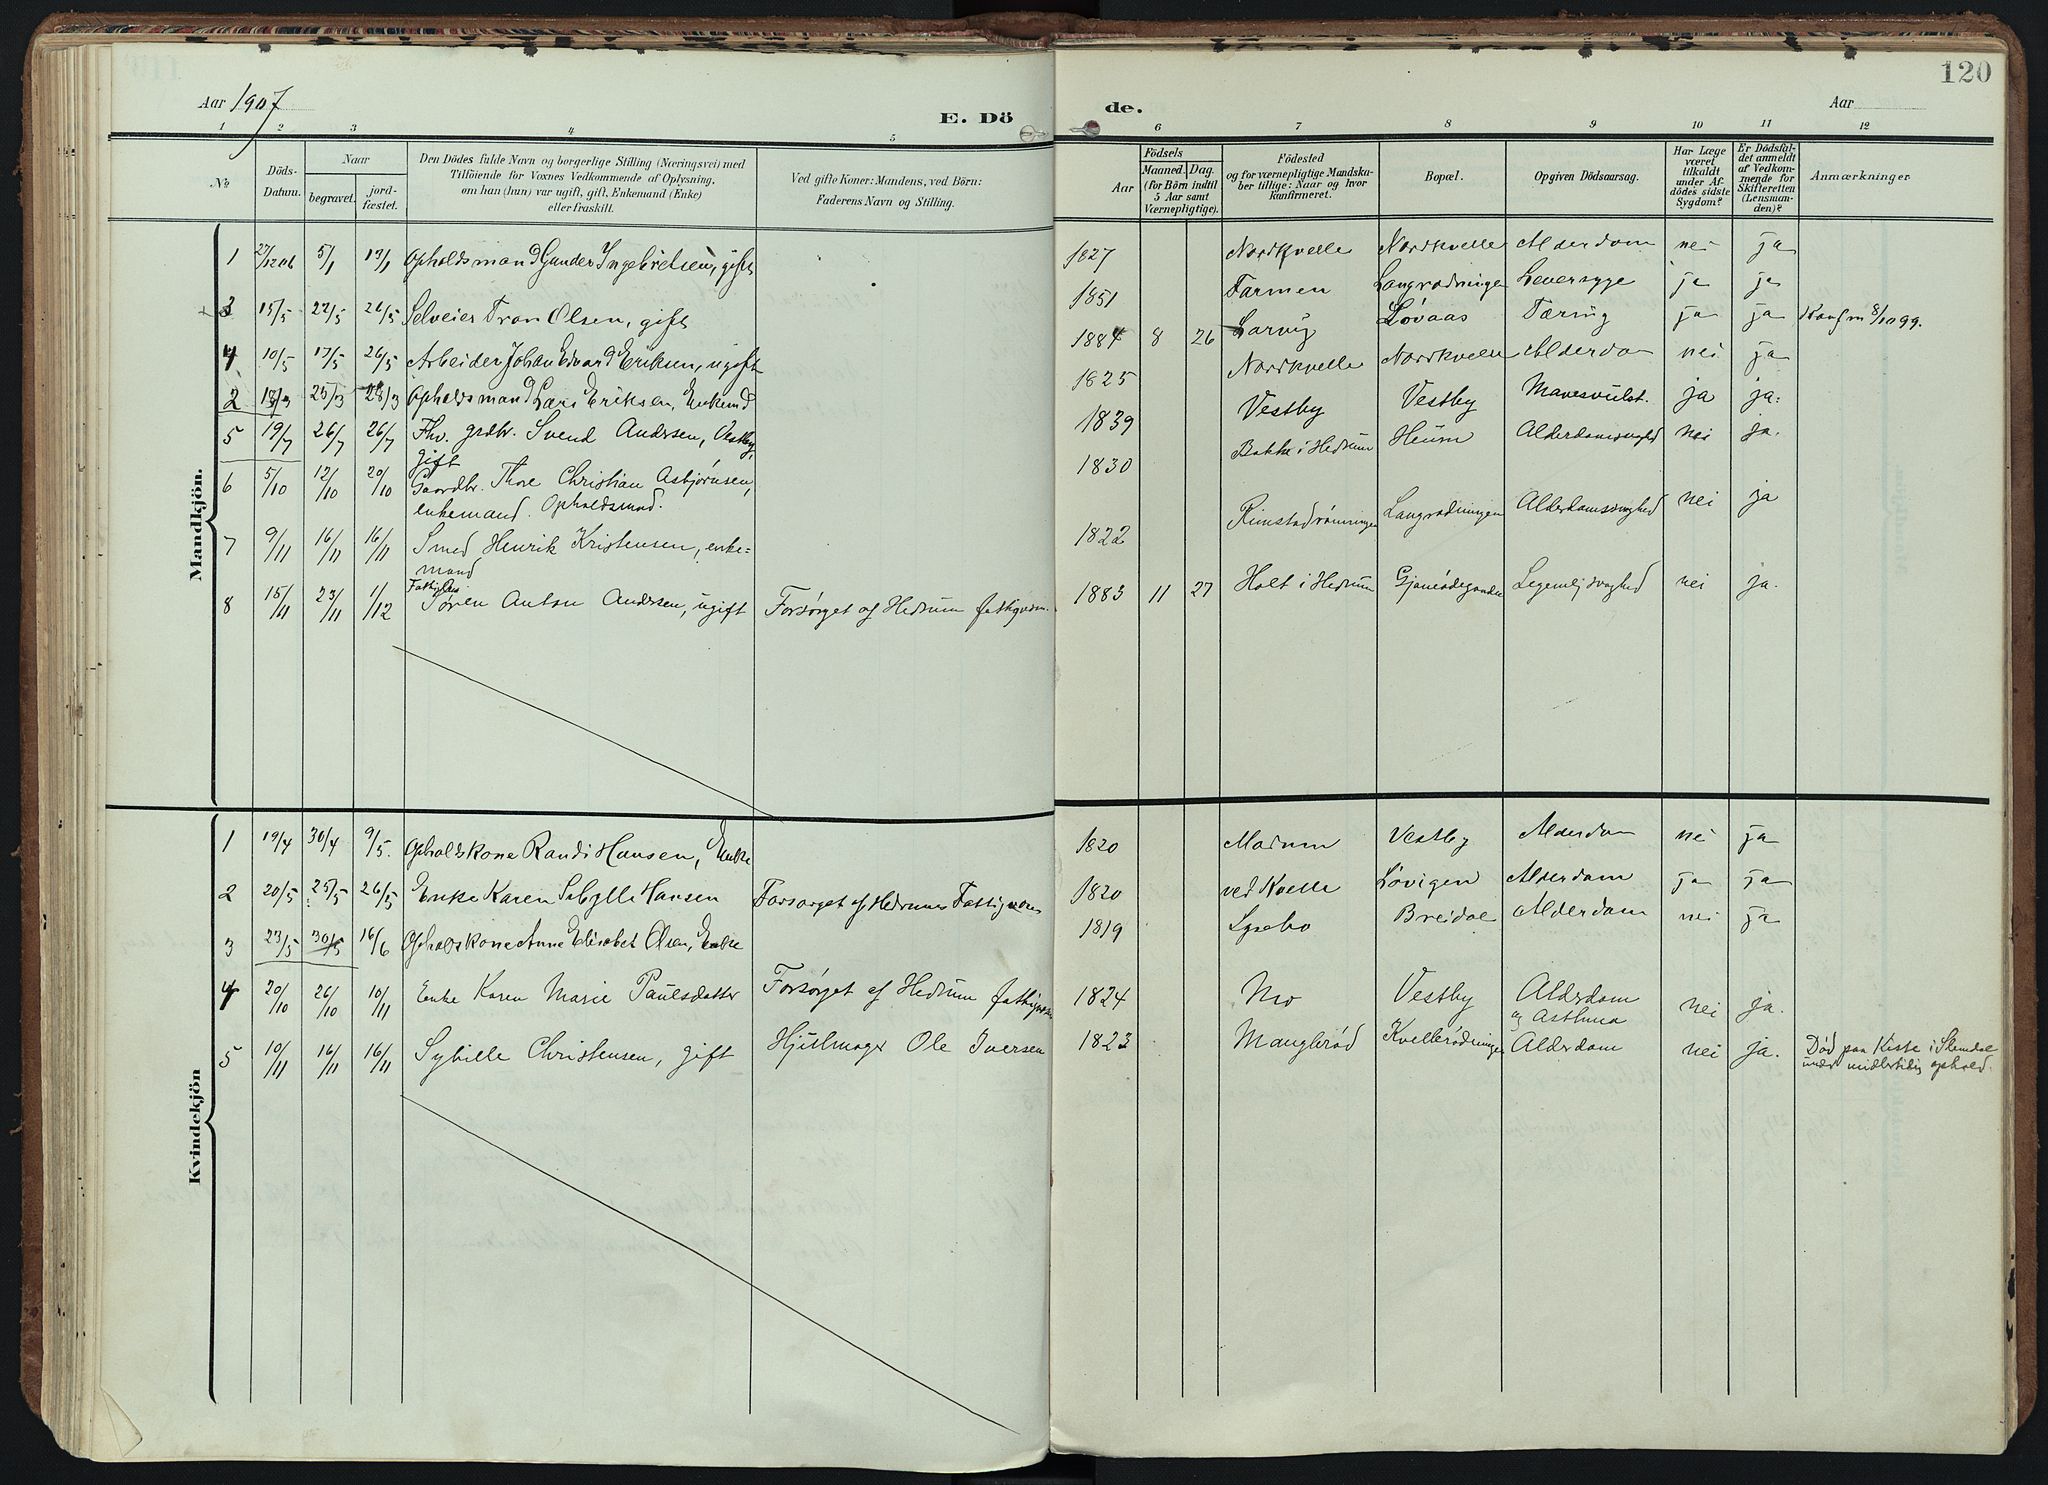 120
Aar 1907
E. Dö
de.
Aar
1 2 3 4 5
6 7 8 9 10 11 12
No
Döds-
Datum.
Naar
begravet.
jord-
fæstet.
Den Dödes fulde Navn og borgerlige Stilling (Næringsvei) med
Tilföiende for Voxnes Vedkommende af Oplysning,
om han (hun) var ugift, gift, Enkemand (Enke)
eller fraskilt.
Ved gifte Koner: Mandens, ved Börn:
Faderens Navn og Stilling.
Födsels
Aar
Maaned. Dag.
(for Börn indtil
5 Aar samt
Værnepligtige).
Födested
og for værnepligtige Mandska-
ber tillige: Naar og hvor
konfirmeret.
Bopæl.
Opgiven Dödsaarsag.
Har Læge
været
tilkaldt
under Af-
dödes sidste
Sygdom?
Er Dödsfal-
det anmeldt
af Vedkom-
mende for
Skifteretten
(Lensman-
den)?
Anmærkninger
Mandkjön.
1 27/12 06 5/1 13/1 Opholdsmand Gunder Ingebretsen, gift 1827 Nordkvelle Nordkvelle Alderdom nei ja
3 15/5 22/5 26/5 Selveier Tron Olsen, gift 1851 Farmen Langrødningen Leversyge ja ja
4 10/5 17/5 26/5 Arbeider Johan Edvard Eriksen, ugift 1884 8 26 Larvig Løvaas Tæring ja ja Konfm 8/10 99.
2 18/3 25/3 28/3 Opholdsmand Lars Eriksen, Enkemd 1825 Nordkvelle Nordkvelle Alderdom nei ja
5 19/7 26/7 26/7 Fhv. grdbr. Svend Andersen, Vestby, 1839 Vestby Vestby Mavesvulst. ja ja.
gift
6 5/10 12/10 20/10 Gaardbr. Thore Christian Asbjørnsen, 1830 Bakke i Hedrum Heum Alderdomssvaghed nei ja.
enkemand. Opholdsmand.
7 9/11 16/11 16/11 Smed Henrik Kristensen, enke- 1822 Rimstadrønningen Langrødningen Alderdomssvaghed nei ja
mand
8 15/11 23/11 1/12 Søren Anton Andersen, ugift Forsørget af Hedrum fattigvæsn. 1883 11 27 Holt i Hedrum Legemlig svaghed nei ja.
Kvindekjön
1 19/4 30/4 9/5. Opholdskone Randi Hansen, Enke 1820 Morum Vestby Alderdom nei ja
2 20/5 25/5 26/5 Enke Karen Sibylle Hansen Forsørget af Hedrums Fattigvæs 1820 ved Kvelle Løvigen Alderdom ja ja
3 23/5 30/5 16/6 Opholdskone Anne Elisabet Olsen, Enke 1819 Lysebo Breidal Alderdom nei ja
4 20/10 26/10 10/11 Enke Karen Marie Paulsdatter Forsørget af Hedrum fattigvæsn 1824 Mo Vestby Alderdom nei ja.
og Asthma
5 10/11 16/11 16/11 Sybille Christensen, gift Hjulmager Ole Iversen 1823 Manglerød Kvellerødningen Alderdom nei ja. Død paa Kiste i Slemdal
under midlertidig ophold.